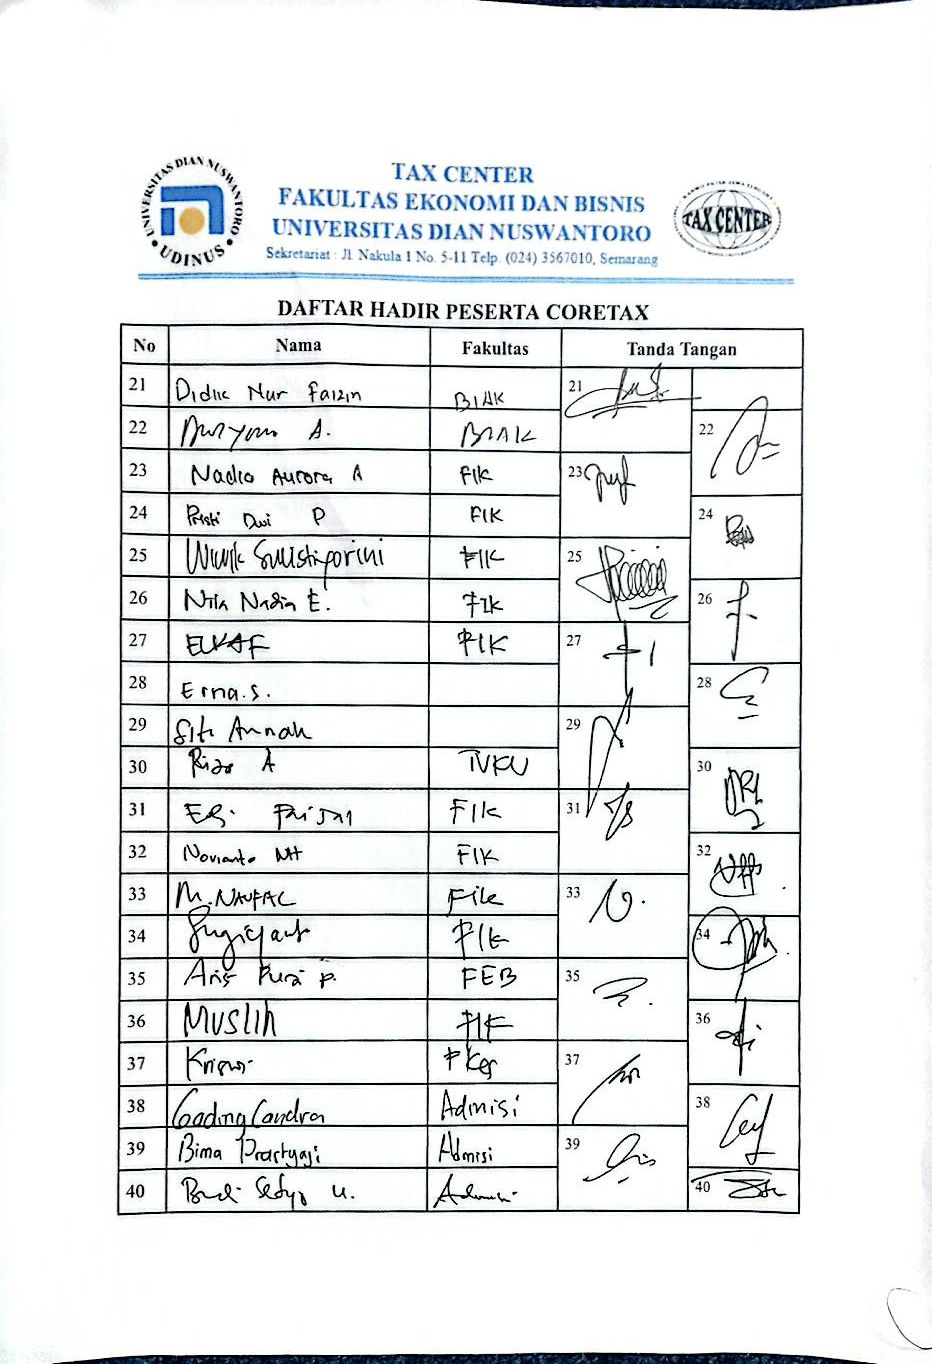 UNIVERSITAS DIAN NUSWANTORO
UDINUS
TAX CENTER
FAKULTAS EKONOMI DAN BISNIS
UNIVERSITAS DIAN NUSWANTORO
Sekretariat : Jl. Nakula 1 No. 5-11 Telp. (024) 3567010, Semarang
TAX CENTER
DAFTAR HADIR PESERTA CORETAX
No Nama Fakultas Tanda Tangan
21 Didik Nur Faizin BIAK 21
22 A. BIAK 22
23 Nadia Aurora A FIK 23
24 Pristi Dwi P FIK 24
25 Wiwik Sulistiyorini FIK 25
26 Nita Nadia E. FIK 26
27 FIK 27
28 Erna.S. 28
29 Siti Annah 29
30 Riza A TVKU 30
31 Edi Faisal FIK 31
32 Novianto NH FIK 32
33 M. NAUFAL FIK 33
34 Sugiyanto FIK 34
35 Aris Puji P. FEB 35
36 MUSLIH FIK 36
37 FKes 37
38 Gading Candra Admisi 38
39 Bima Prastyaji Admisi 39
40 Budi Setyo U. Admisi 40